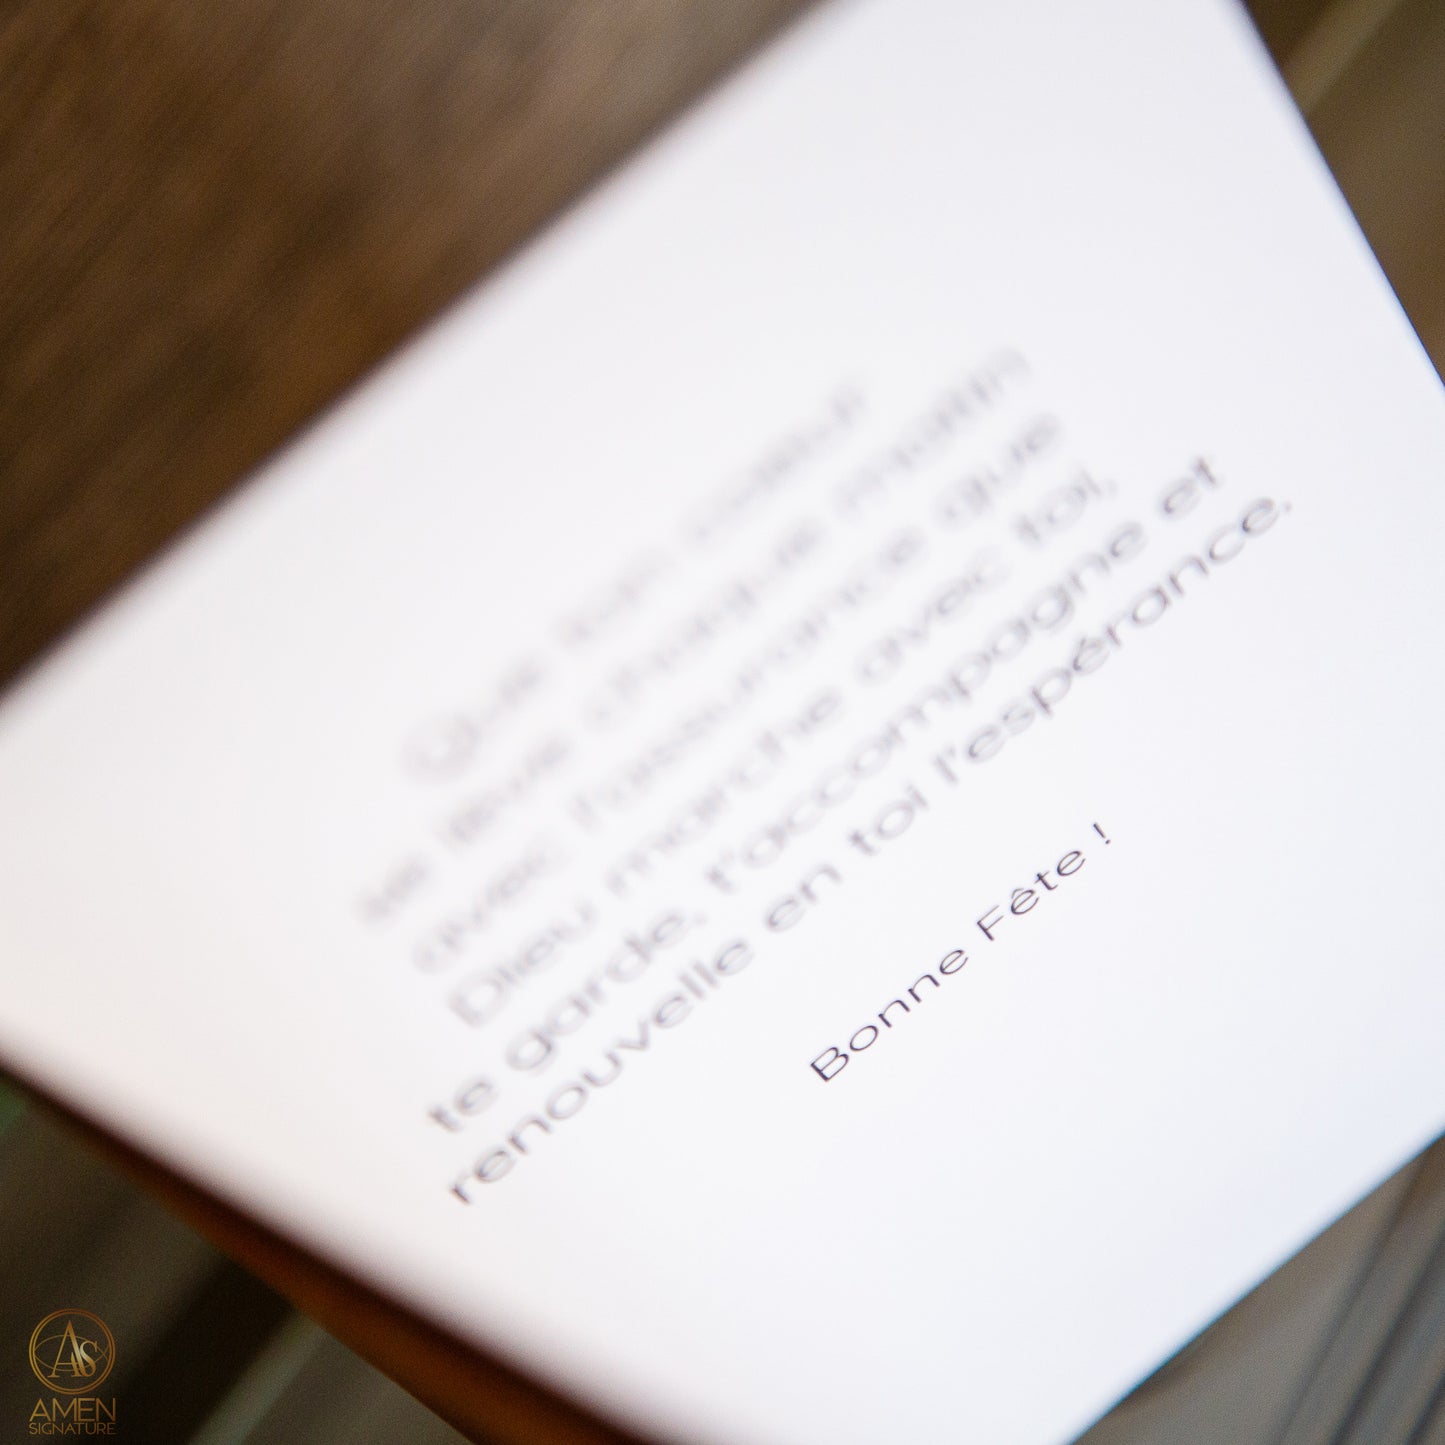 Que ton cœur
se lève chaque matin
avec l'assurance que
Dieu marche avec toi,
te garde, t'accompagne et
renouvelle en toi l'espérance.
Bonne Fête !
AS
AMEN
SIGNATURE